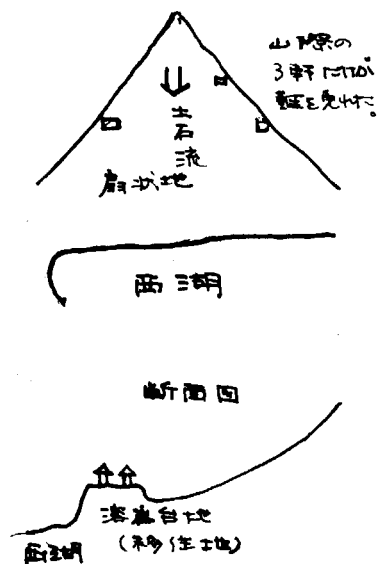 山際の
3軒だけが
難を免れた。
土石流
扇状地
西湖
断面図
溶岩台地
(移住地)
西湖